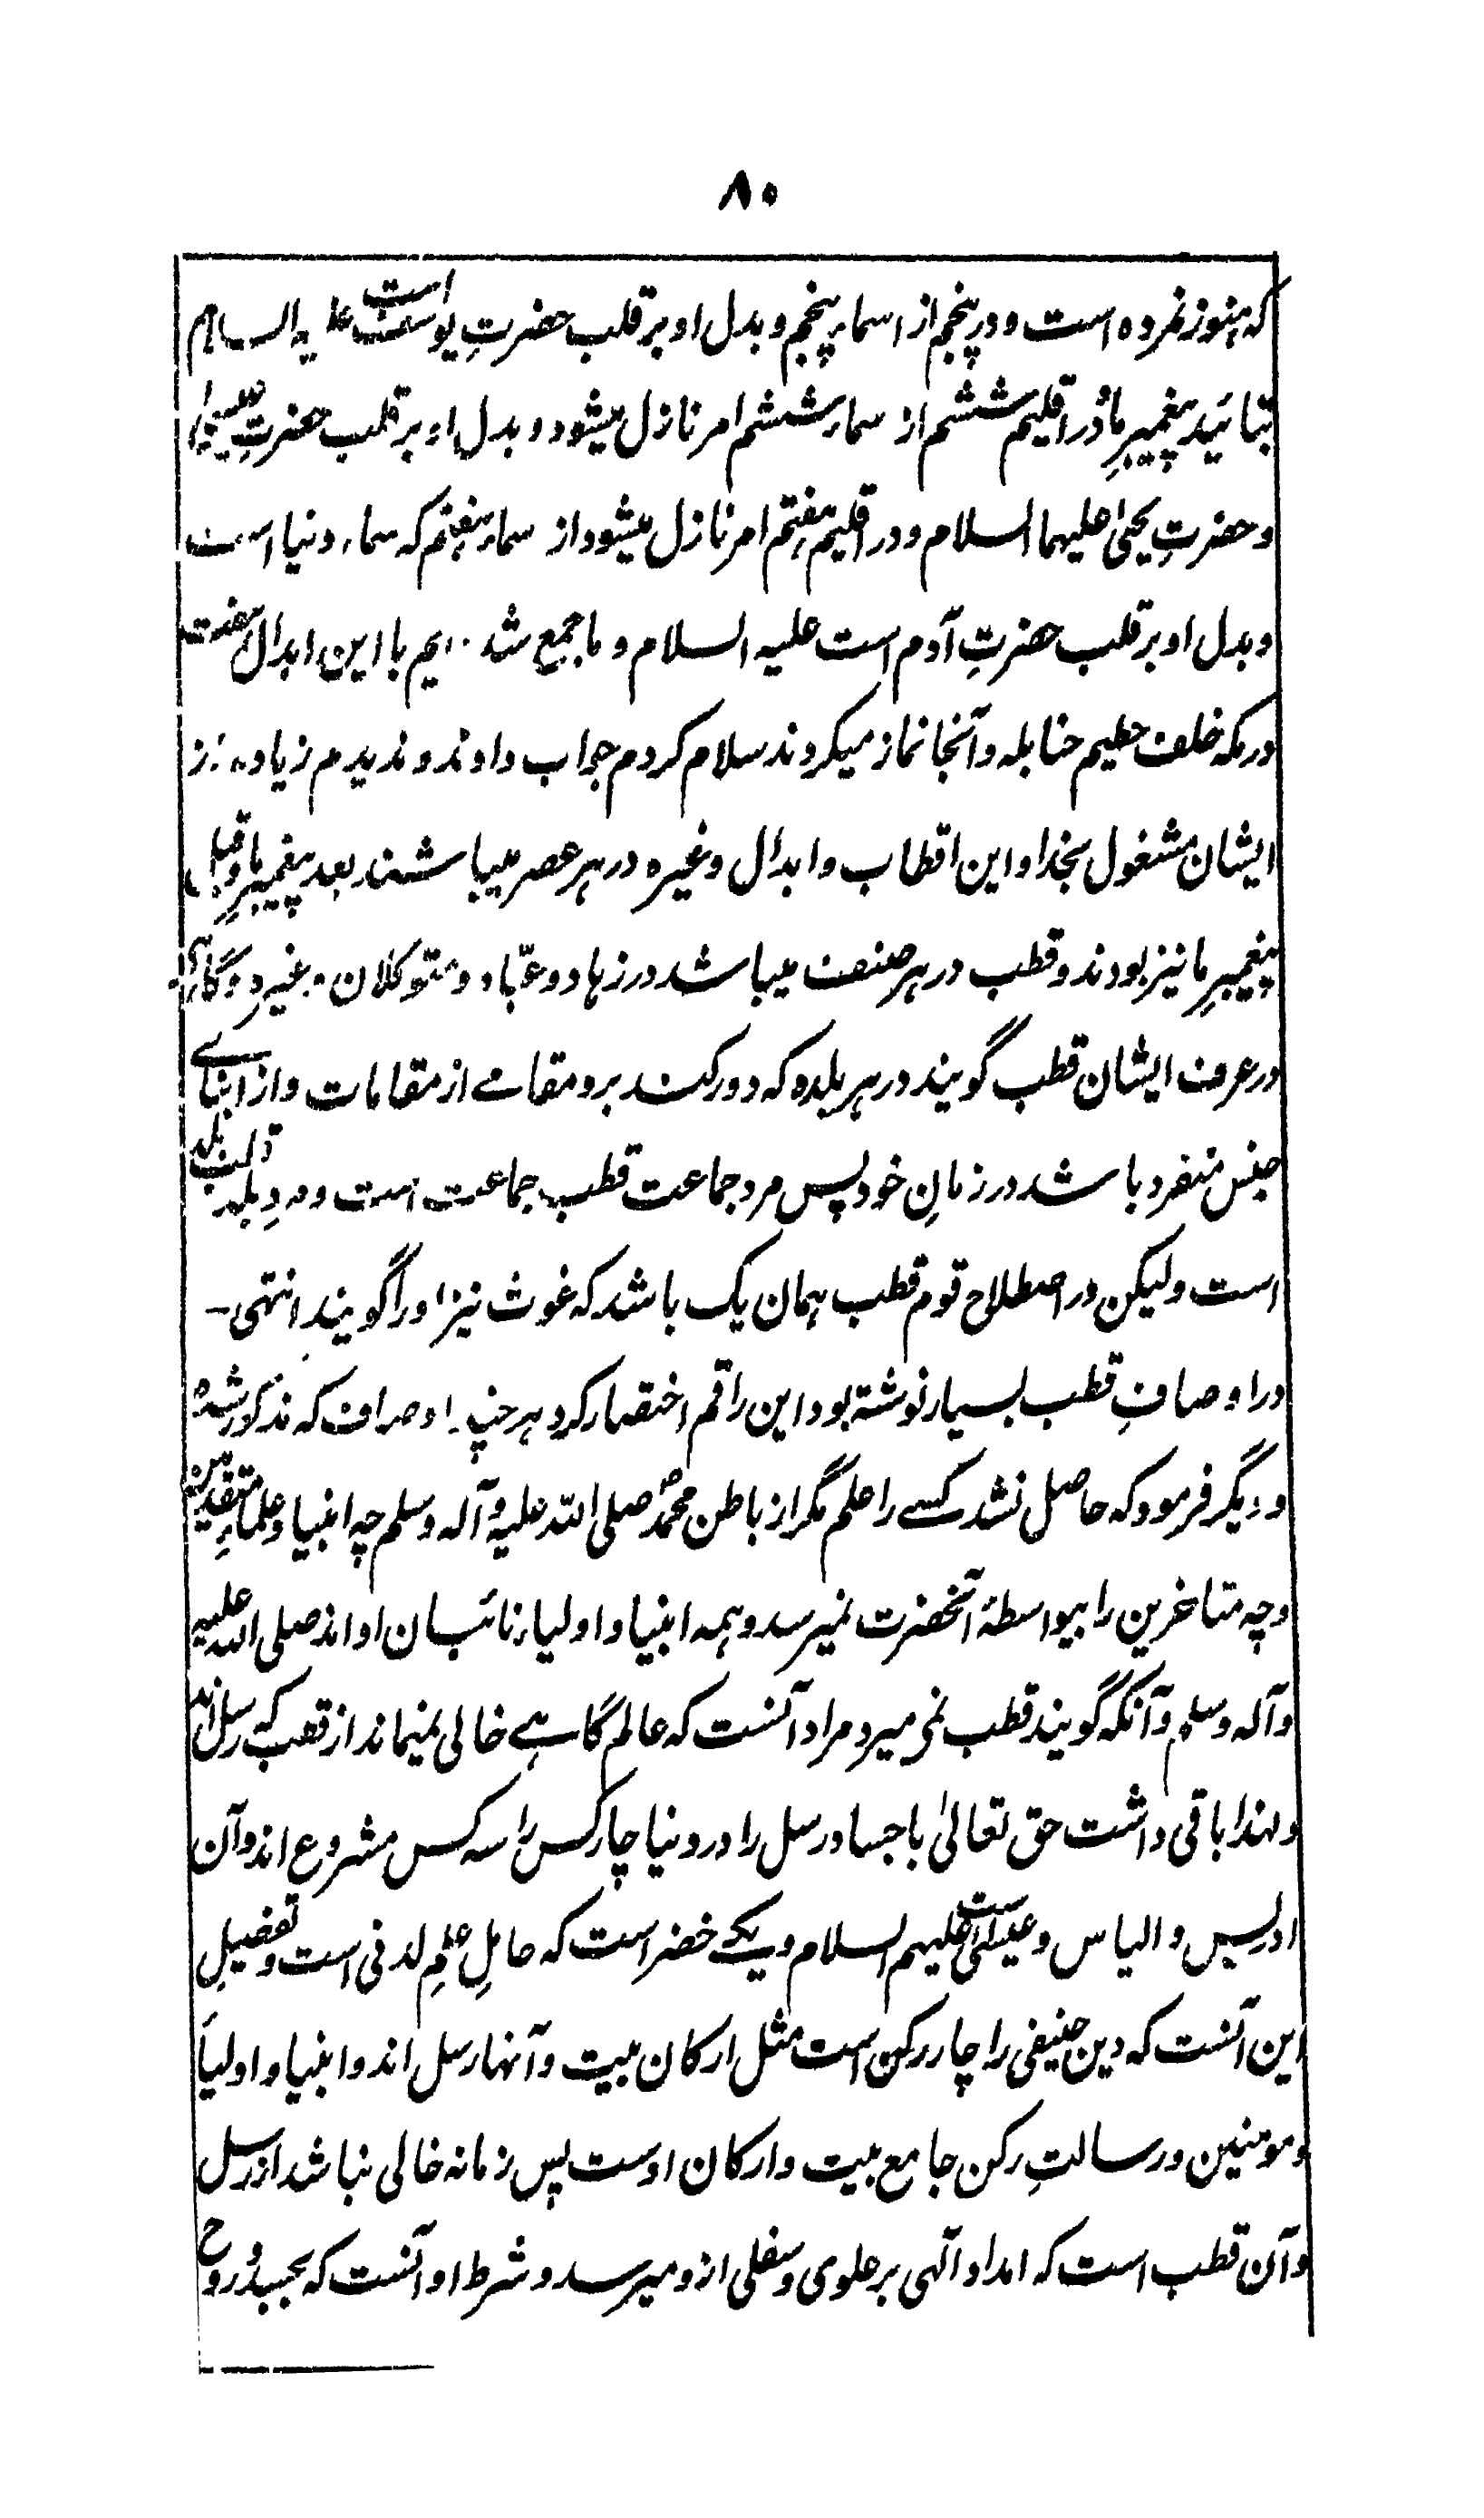 ۸۰
که هنوز نمرده است و در پنجم از سماء پنجم و بدل او بر قلب حضرتِ یوسف است علیه السلام
بتائید پیغمبرِ ما و در اقلیم ششم از سماء ششم امر نازل میشود و بدل او بر قلب حضرتِ عیسیٰ
و حضرتِ یحیٰی علیہما السلام و در اقلیم ہفتم امر نازل میشود از سماء ہفتم که سماء دنیا است
و بدل او بر قلب حضرتِ آدم است علیه السلام و ما جمع شده ایم با این ابدال ہفت
در مکه خلف حطیم حنابله و آنجا نماز میکردند سلام کردم جواب دادند و ندیدم زیاده از
ایشان مشغول بخدا و این اقطاب و ابدال و غیره در ہر عصر میباشند بعد پیغمبرِ ما و قبل
پیغمبرِ ما نیز بودند و قطب در ہر صنف میباشد در زہاد و عبّاد و متوکلان و غیره و گاہی
در عرف ایشان قطب گویند در ہر بلده که دور کند برو مقامے از مقامات و از ابنائے
جنس منفرد باشد در زمانِ خود پس مرد جماعت قطب جماعت است و مردِ بلد قطب بلد
است و لیکن در اصطلاح قوم قطب ہمان یک باشد که غوث نیز او را گویند انتہی ـ
در اوصافِ قطب بسیار نوشته بود این راقم اختصار کرد ہر چند اوصاف که مذکور شده
و دیگر فرمود که حاصل نشد کسے را علم مگر از باطن محمدؐ صلی اللّه علیه و آله وسلم چه انبیا و علماءِ متقدمین
و چه متاخرین را بیواسطهٔ آنحضرت نمیرسد و ہمه انبیا و اولیاء نائبان او اند صلی اللّه علیه
و آله وسلم و آنکه گویند قطب نمی میرد مراد آنست که عالم گاہے خالی نمیماند از قطب که رسل اند
و لہذا باقی داشت حق تعالیٰ باجساد رسل را در دنیا چار کس را سه کس مشروع اند و آن
ادریس و الیاس و عیسیٰ است علیہم السلام و یکے خضر است که حاملِ علمِ لدنی است و تفصیلِ
این آنست که دین حنیفی را چار رکن است مثل ارکان بیت و آنہا رسل اند و انبیا و اولیاء
و مومنین و رسالتِ رکن جامع بیت و ارکان اوست پس زمانه خالی نباشد از رسل
و آن قطب است که امداد آلہی بر علوی و سفلی ازو میرسد و شرط او آنست که بجسد و روح